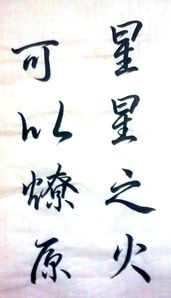 星星之火
可以燎原